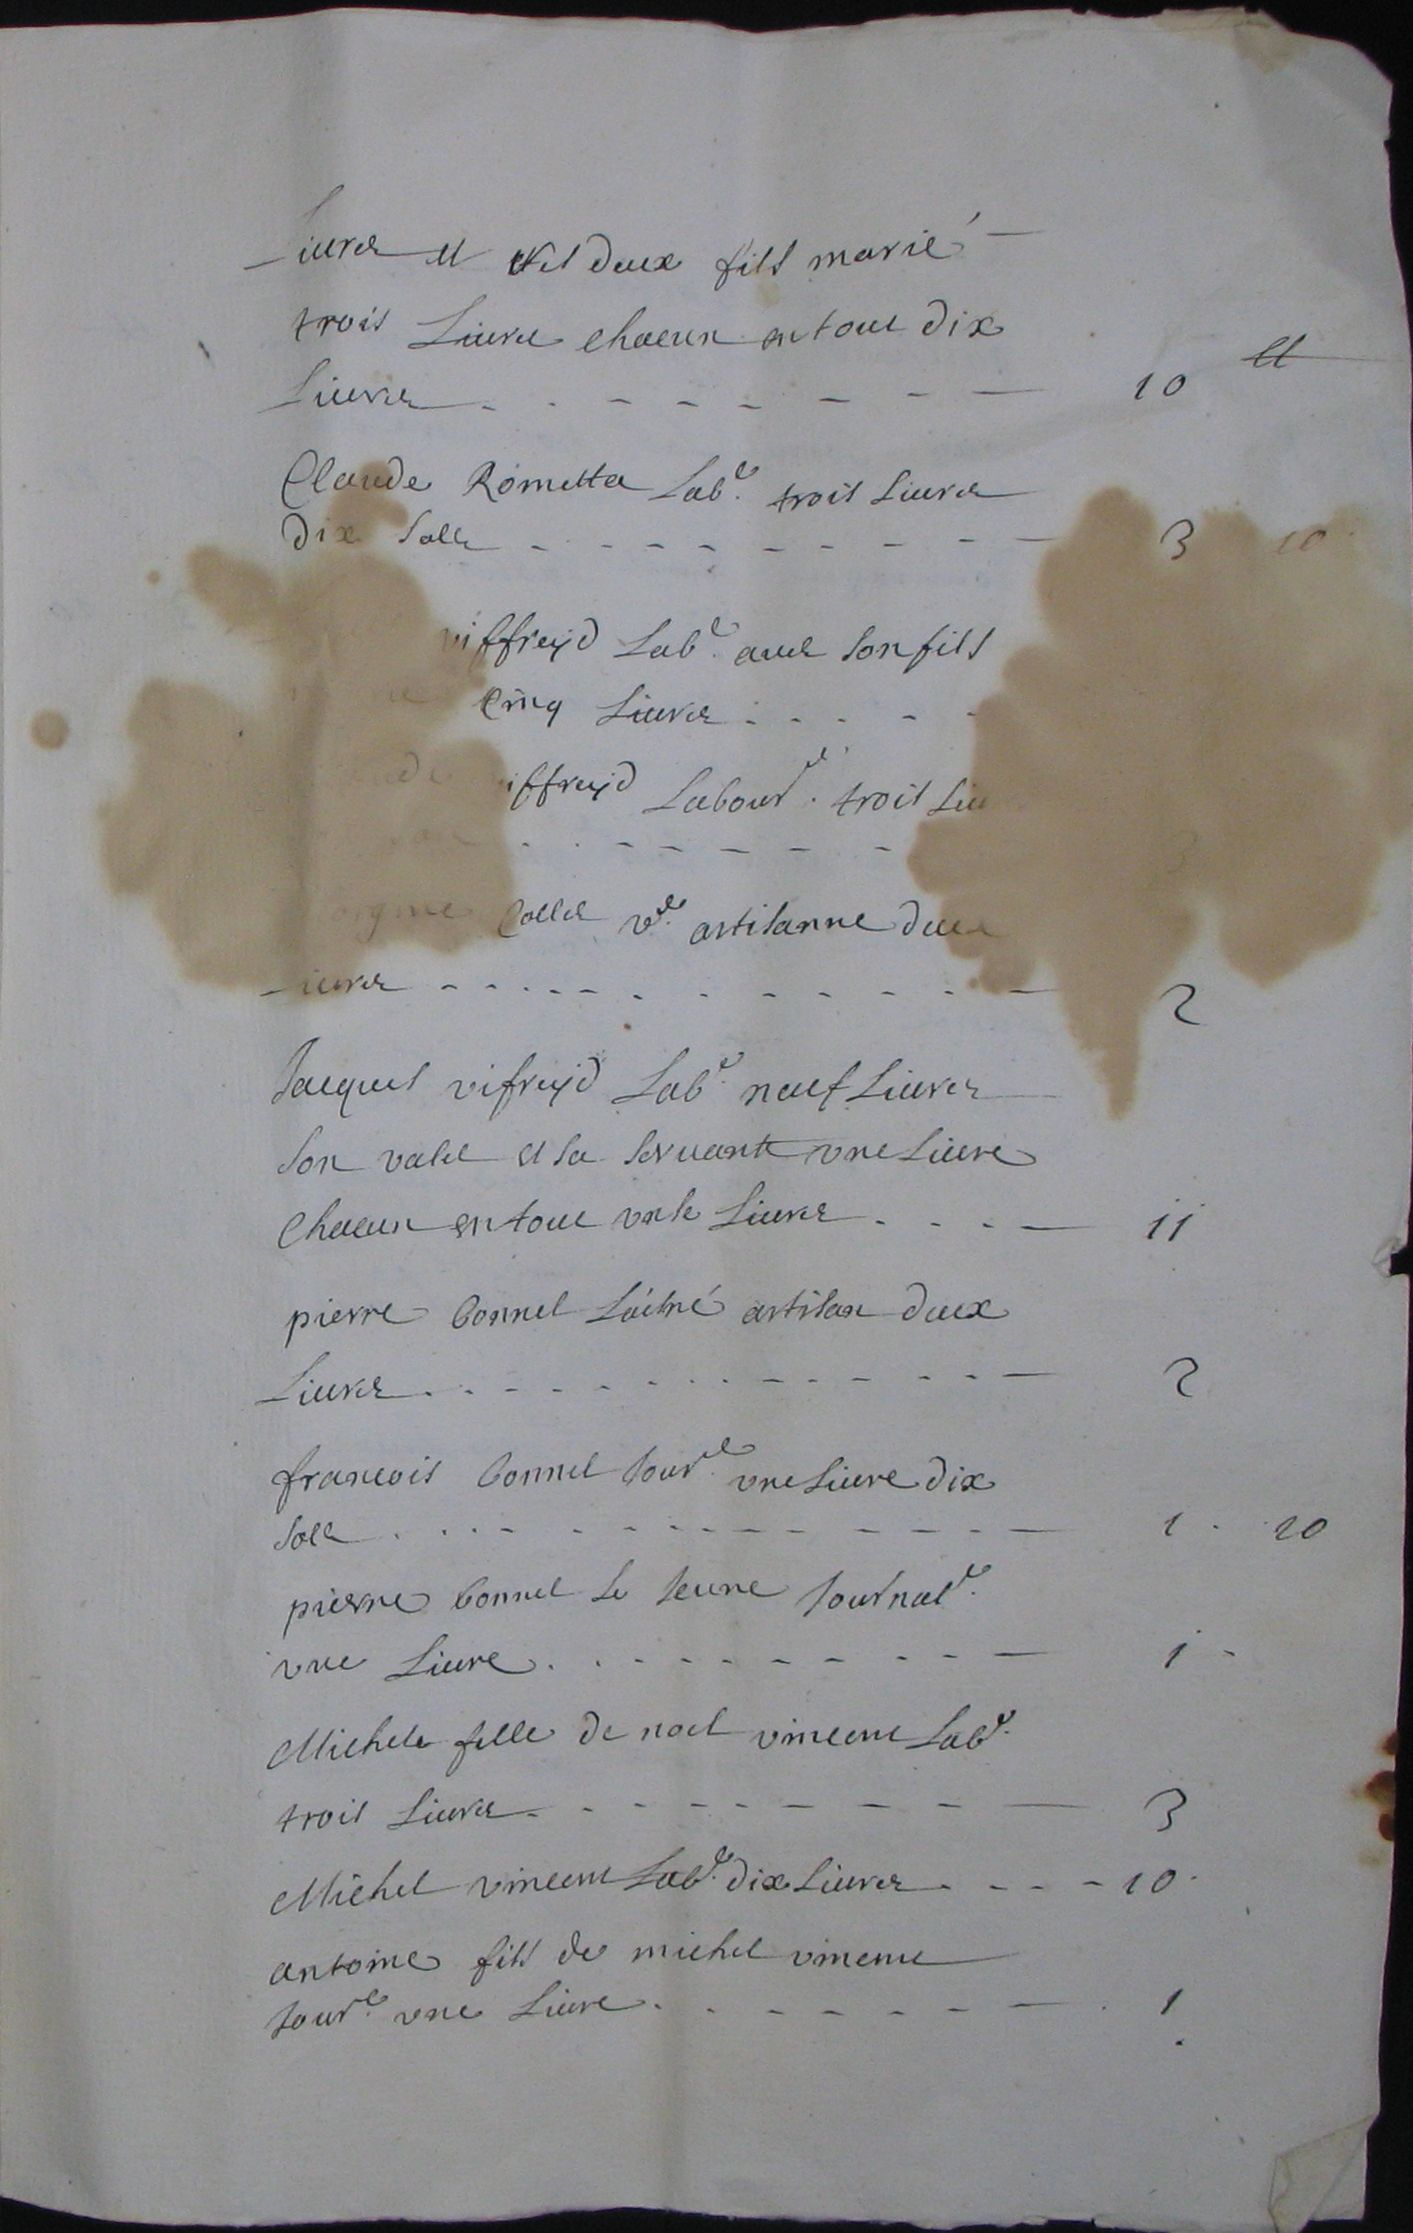 Livres et ses deux fils marié
trois Livres chacun en tout dix
Livres 10 ll
Claude Rometta Lab.r trois Livres
dix sols 3 10
viffreyd Lab.r avec son fils
cinq Livres
viffreyd Labour.r trois Liv
v.e artisanne deux
Livres 2
Jacques vifreyd Lab.r neuf Livres
son valet et sa servante une Livre
chacun en tout onze Livres 11
pierre bonnet L'aîné artisan deux
Livres 2
francois bonnet Jour.r une Livre dix
sols 1 10
pierre bonnet Le Jeune Journal.r
une Livre 1
Michele fille de noel vincent Lab.r
trois Livres 3
Michel vincent Lab.r dix Livres 10
antoine fils de michel vincent
Jour.r une Livre 1